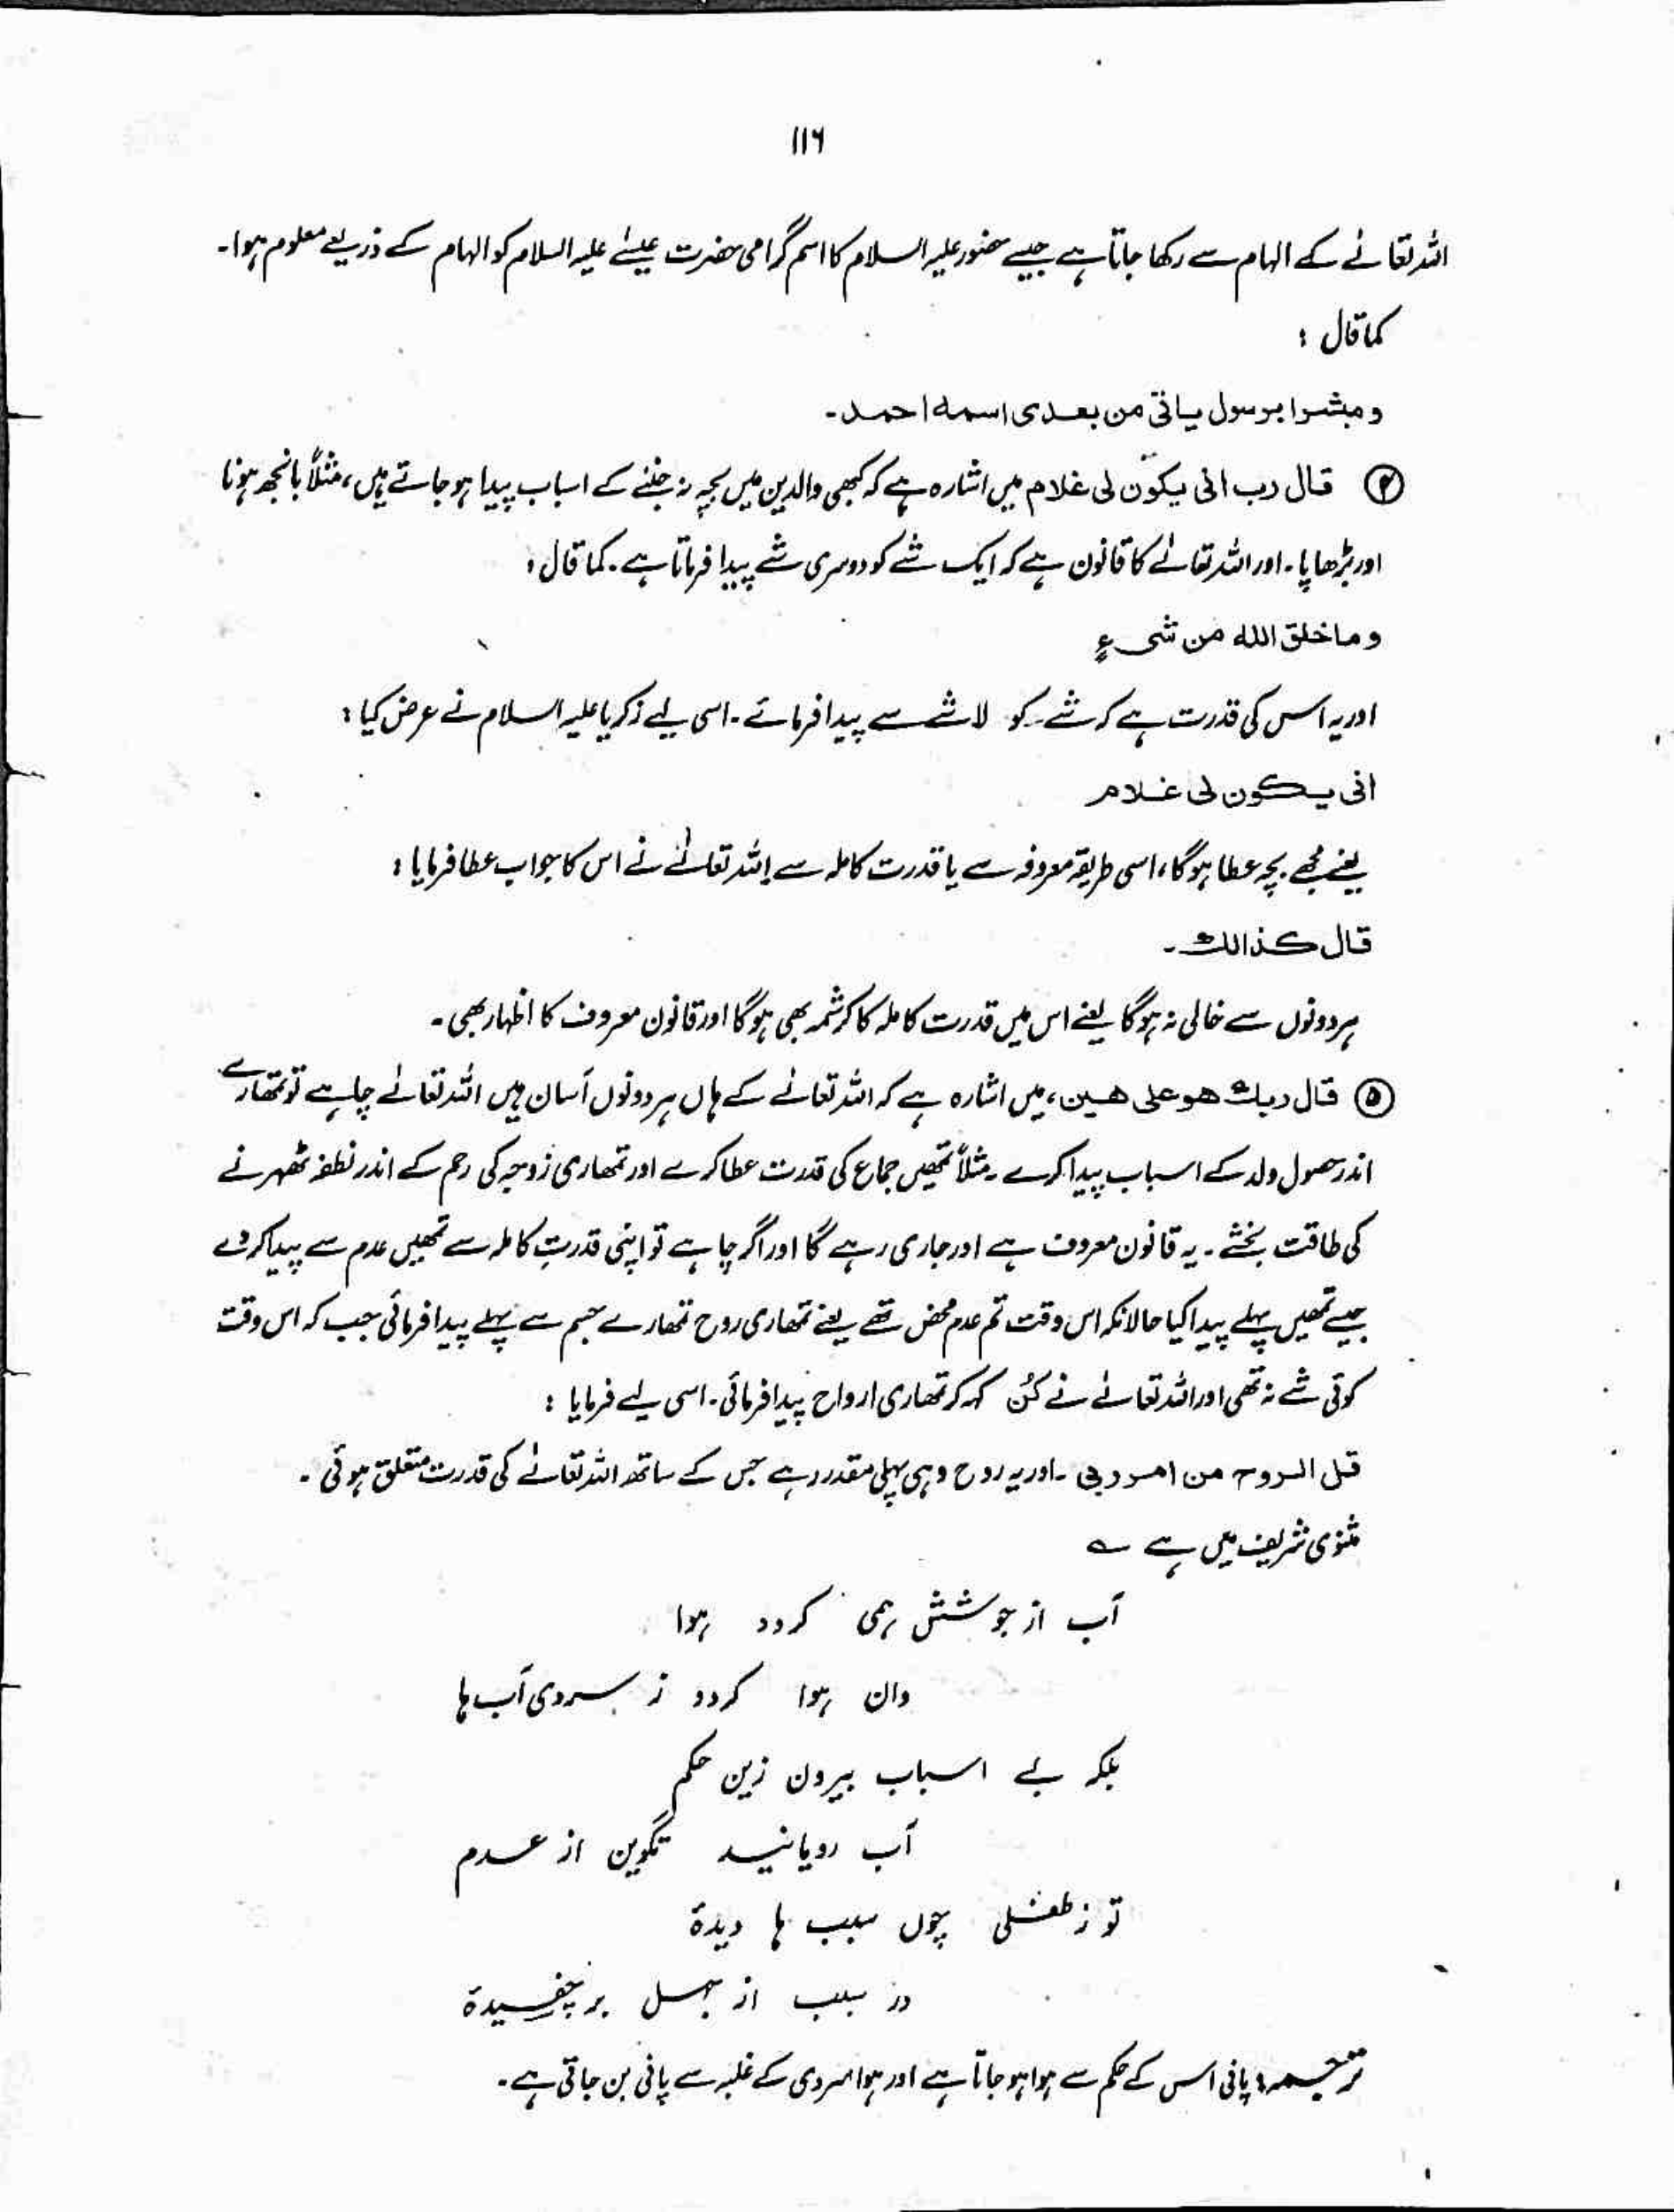 ۱۱۶
اللہ تعالےٰ کے الہام سے رکھا جاتا ہے جیسے حضور علیہ السلام کا اسم گرامی حضرت عیسےٰ علیہ السلام کو الہام کے ذریعے معلوم ہوا۔
کما قال :
و مبشرا برسول یاتی من بعدی اسمہ احمد۔
④ قال رب انی یکون لی غلام میں اشارہ ہے کہ کبھی والدین میں بچہ نہ جننے کے اسباب پیدا ہو جاتے ہیں، مثلاً بانجھ ہونا
اور بڑھاپا۔ اور اللہ تعالےٰ کا قانون ہے کہ ایک شے کو دوسری شے پیدا فرماتا ہے۔ کما قال :
و ما خلق اللہ من شیءٍ
اور یہ اس کی قدرت ہے کہ شے کو لا شے سے پیدا فرمائے۔ اسی لیے زکریا علیہ السلام نے عرض کیا :
انی یکون لی غلام
یعنے مجھے بچہ عطا ہوگا، اسی طریقہ معروفہ سے یا قدرت کاملہ سے اللہ تعالےٰ نے اس کا جواب عطا فرمایا :
قال کذالک۔
ہر دونوں سے خالی نہ ہوگا یعنے اس میں قدرت کاملہ کا کرشمہ بھی ہوگا اور قانون معروف کا اظہار بھی۔
⑤ قال ربک ھو علی ھین، میں اشارہ ہے کہ اللہ تعالےٰ کے ہاں ہر دونوں آسان ہیں اللہ تعالےٰ چاہے تو تمھارے
اندر حصول ولد کے اسباب پیدا کرے۔ مثلاً تمھیں جماع کی قدرت عطا کرے اور تمھاری زوجہ کی رحم کے اندر نطفہ ٹھہرنے
کی طاقت بخشے۔ یہ قانون معروف ہے اور جاری رہے گا اور اگر چاہے تو اپنی قدرتِ کاملہ سے تمھیں عدم سے پیدا کر دے
جیسے تمھیں پہلے پیدا کیا حالانکہ اس وقت تم عدم محض تھے یعنے تمھاری روح تمھارے جسم سے پہلے پیدا فرمائی جب کہ اس وقت
کوئی شے نہ تھی اور اللہ تعالےٰ نے کُن کہہ کر تمھاری ارواح پیدا فرمائی۔ اسی لیے فرمایا :
قل الروح من امر ربی ۔ اور یہ روح وہی پہلی مقدر ہے جس کے ساتھ اللہ تعالےٰ کی قدرت متعلق ہوئی ۔
مثنوی شریف میں ہے ؎
آب از جوشش ہمی گردد ہوا
وان ہوا گردد ز سردی آب ہا
بلکہ بے اسباب بیرون زین حکم
آب رویانید تکوین از عدم
تو ز طفلی چوں سبب ہا دیدۂ
در سبب از جہل بر چفسیدۂ
ترجمہ: پانی اس کے حکم سے ہوا ہو جاتا ہے اور ہوا سردی کے غلبہ سے پانی بن جاتی ہے۔